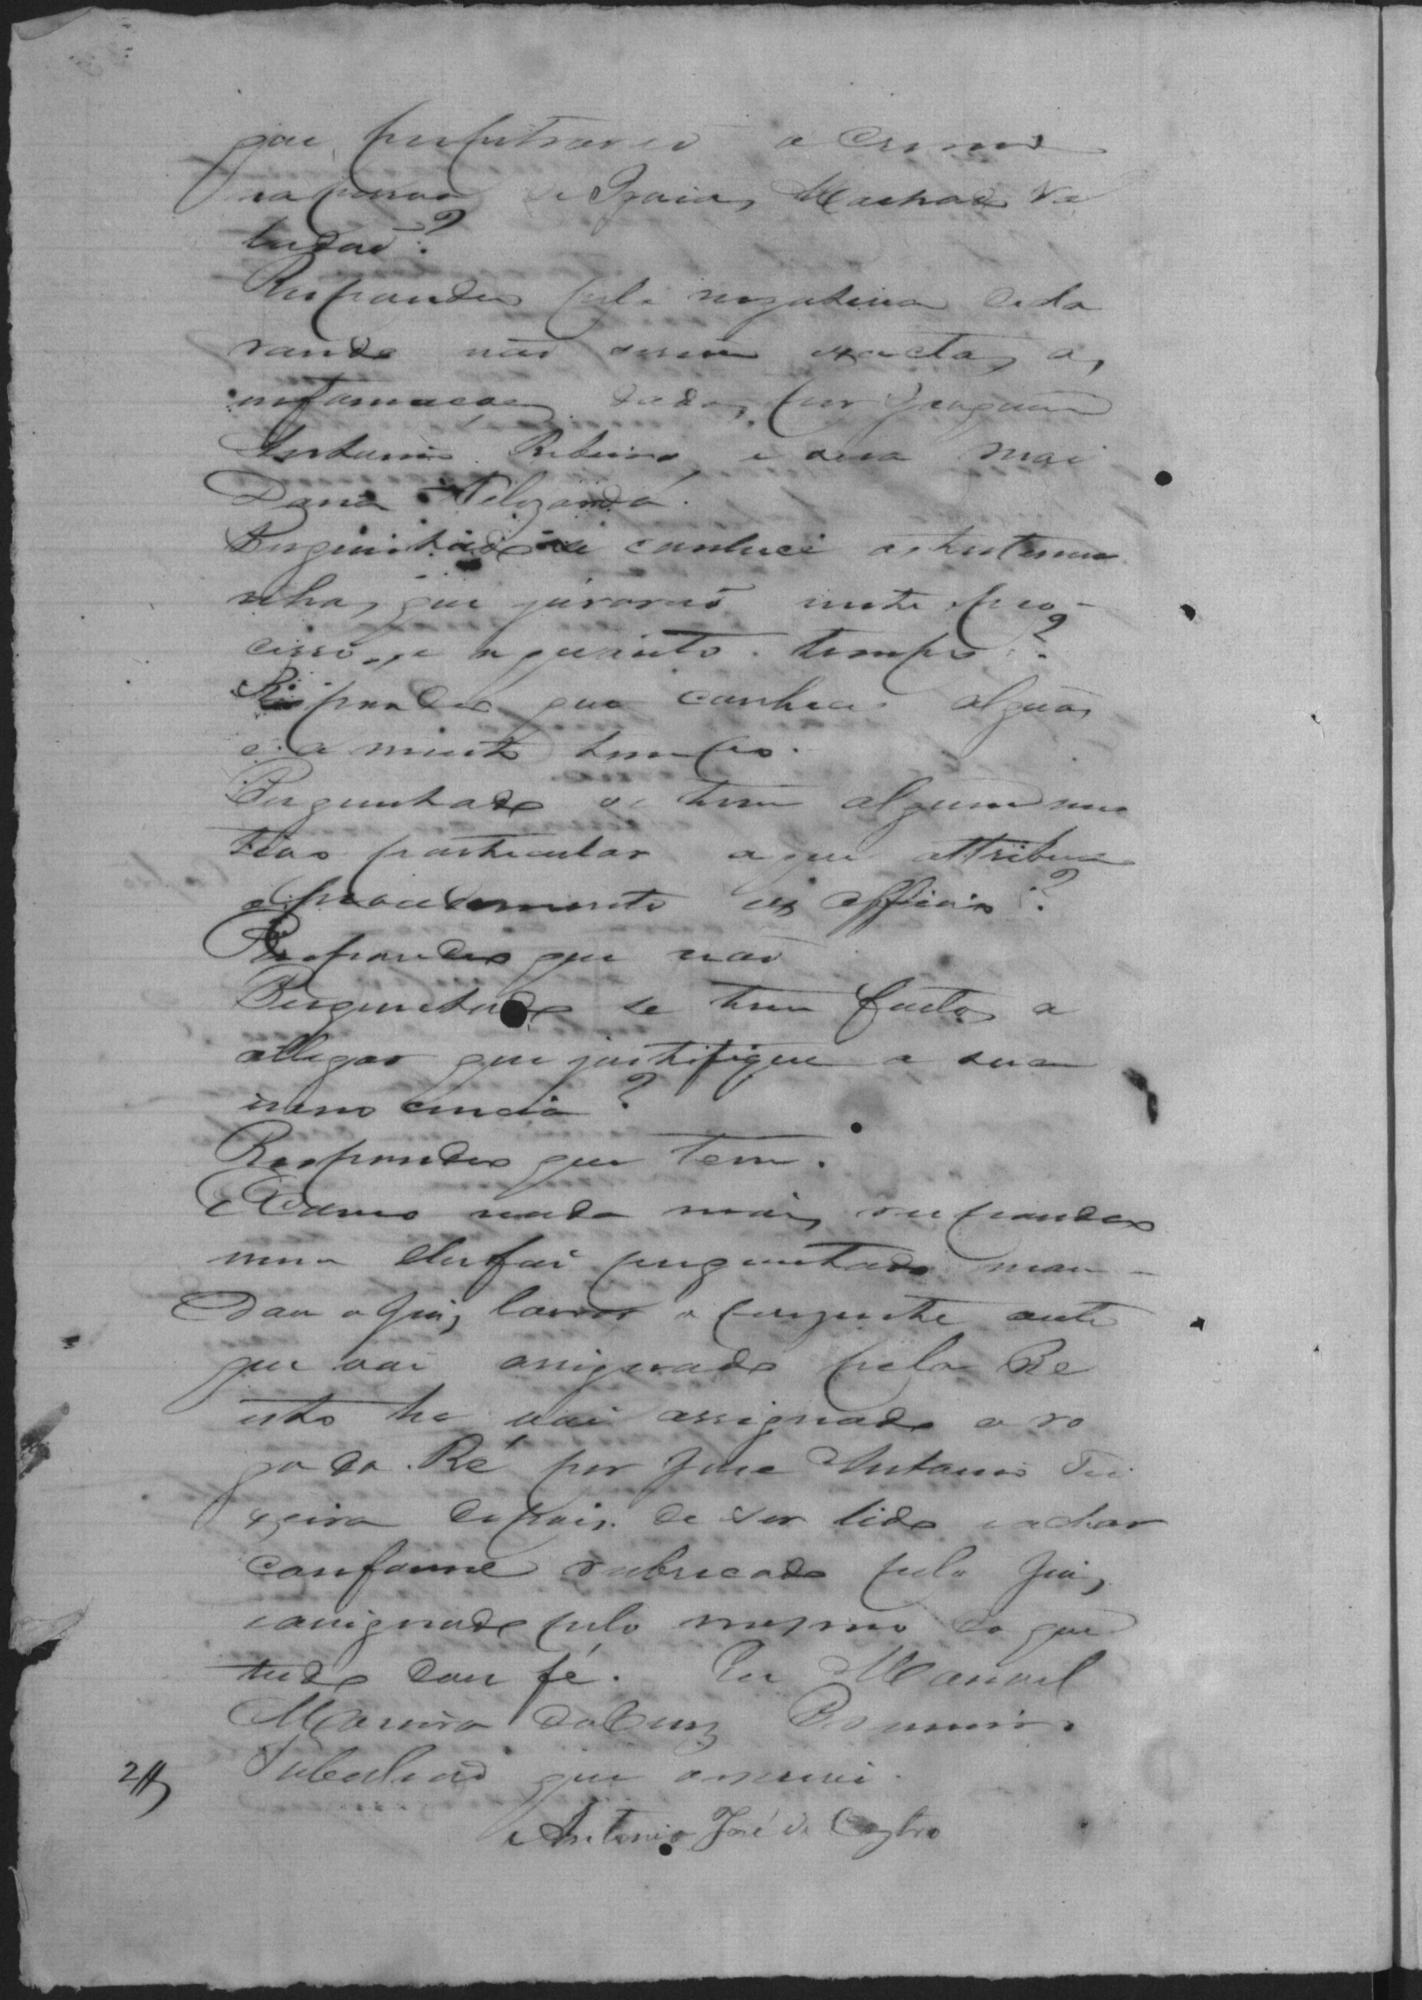 que perpetrarão o crime
na pessoa de Izaias Machado Ve
ludao?
Respondeo pela negativa decla
rando não serem exactas as
informacões dadas por Joaquim
Antonio Ribeiro, e sua mai
Dona
Perguntado se conhece as testemu
nhas que jurarão neste pro-
cesso, e a quanto tempo?
Respondeo que conhece algúas
e a muito tempo.
Perguntado se tem algum mo
tivo particular a que attribua
o procedimento ex officio?
Respondeo que não
Perguntado se tem factos a
allegar que justifique a sua
innocencia?
Respondeo que tem.
E como nada mais respondeo
nem lhe foi perguntado man-
dou o Juiz lavrar o prezente auto
que vai assignado pela Re
isto he vai assignado a ro
go da Ré por Jose Antonio Tei
xeira depois de ser lido e achar
conforme rubricado pelo Juiz,
e assignado pelo mesmo do que
tudo dou fé. Eu Manoel
Moreira da Cruz Primeiro
Tabelião que escrevi.
Antonio José de Castro